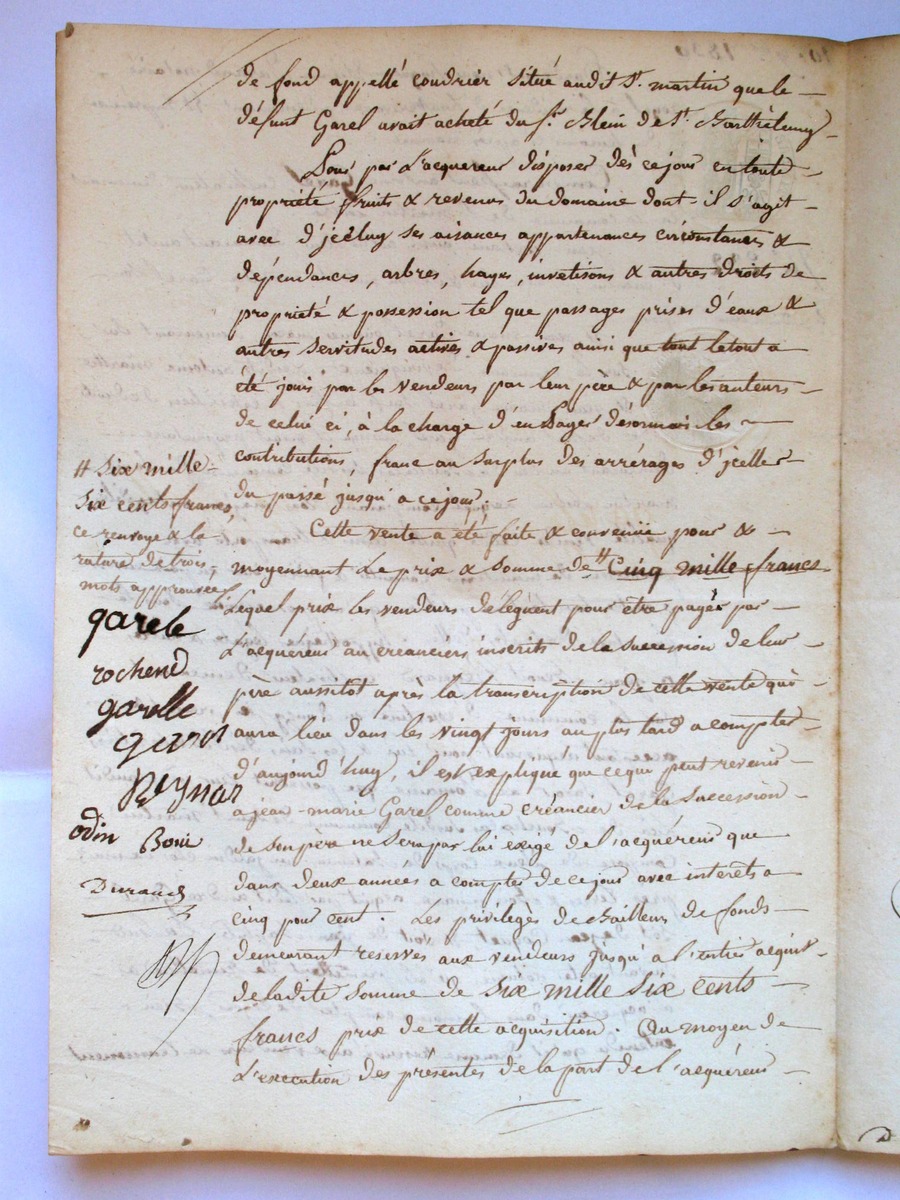 de fond appellé coudrier situé audit St. martin que le
défunt Garel avait acheté du sr. Blein de St. Barthèlemy
Pour par l'acquereur disposer dès ce jour en toute
propriété fruits & revenus du domaine dont il s'agit
avec d'jceluy ses aisances appartenances circonstances &
dépendances, arbres, hayes, invetisons & autres droits de
propriété & possession tel que passages prises d'eaux &
autres servitudes actives & passives ainsi que tout le tout a
été jouis par les vendeurs par leur père & par les auteurs
de celui ci, à la charge d'en payer désormais les
contributions, franc au surplus des arrérages d'jcelles
du passé jusqu'a ce jour.
Cette vente a été faite & convenüe pour &
moyennant le prix & somme de # Cinq mille francs
Lequel prix les vendeurs délèguent pour etre payés par
L'acquéreur au créanciers inscrits de la succession de leur
père aussitot après la transcription de cette vente qui
aura lieu dans les vingt jours au plus tard a compter
d'aujourd'huy, il est expliqué que ce qui peut revenir
a jean-marie Garel comme créancier de la succession
de son père ne sera par lui exigé de l'acquéreur que
dans deux années a compter de ce jour avec interets a
cinq pour cent. Les privilèges de Bailleur de fonds
demeurant reservés aux vendeurs jusqu'a l'entier acquit
de ladite somme de six mille six cents
francs prix de cette acquisition. Au moyen de
L'execution des présentes de la part de l'acquéreur
# six mille
six cents francs,
ce renvoye & la
rature de trois
mots approuvées
garele
rochend
garelle
garel
Reynar
odin Boni
Durand